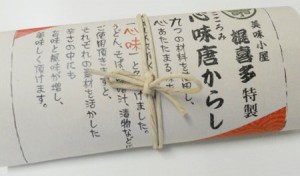 美味小屋
梶喜多 特製
こころみ
心味唐からし
九つの材料を
心あたたまる
「心味」と
けました。
うどん、そば
汁、漬物など
ご使用頂きますと
それぞれの素材を活かした
辛さの中にも
旨味と風味が増し、
美味しく頂けます。